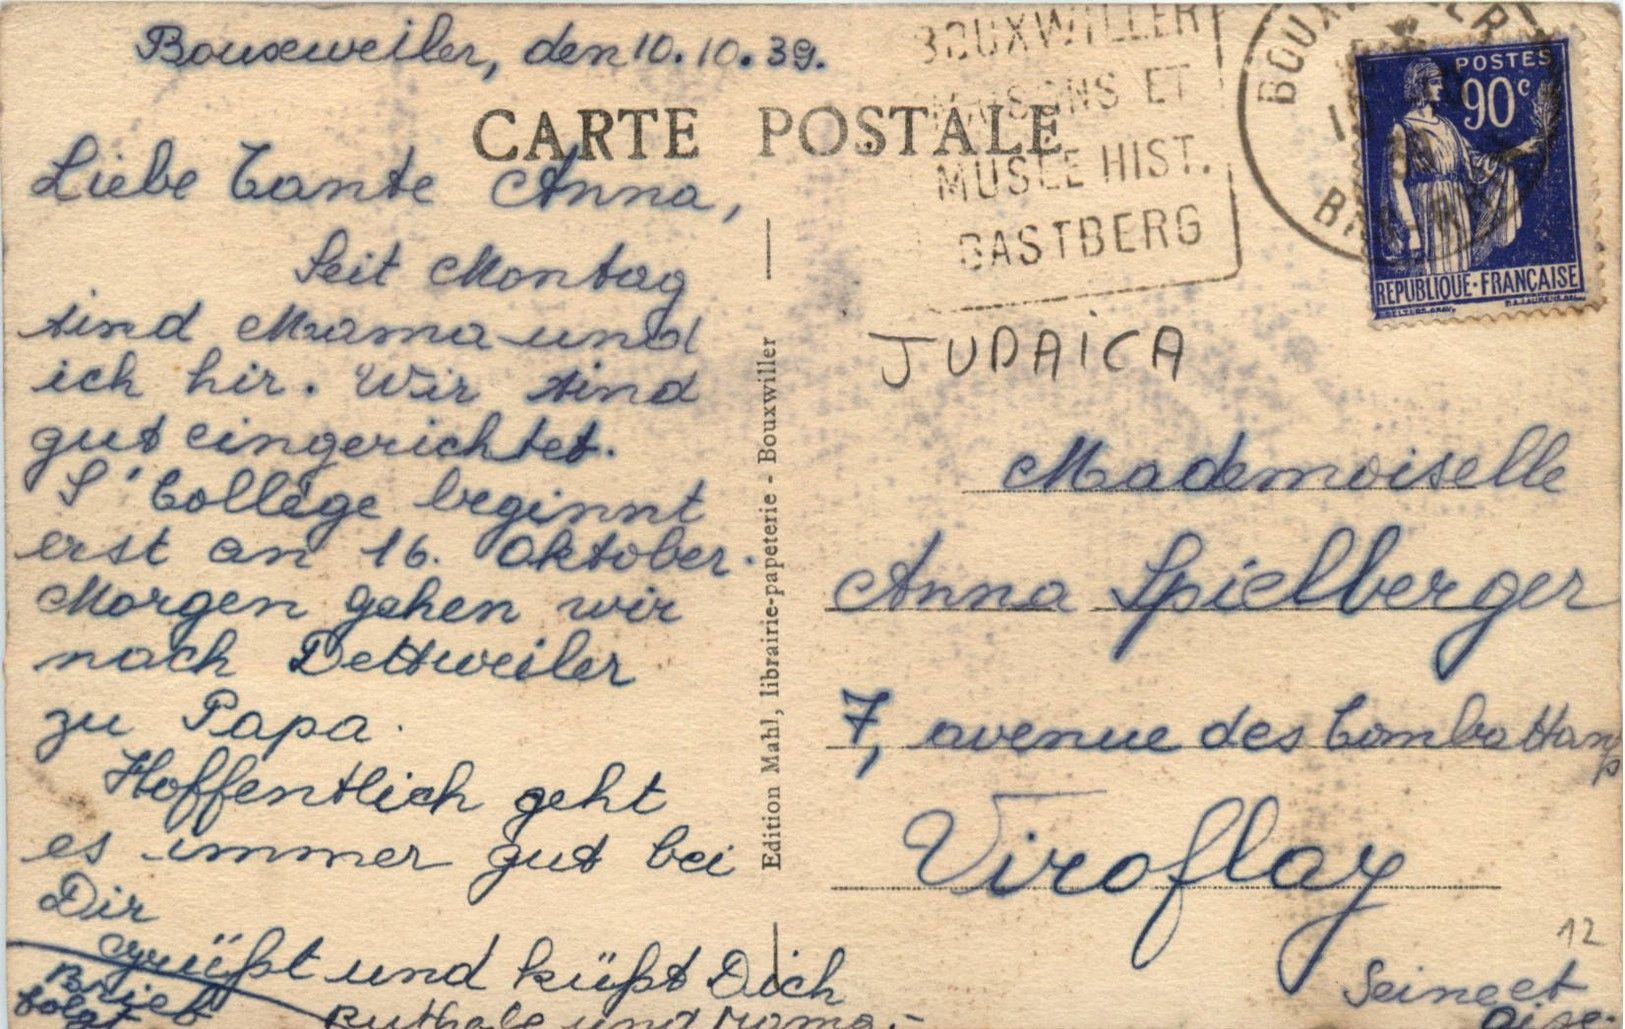 Bouxweiler, den 10.10.39.
CARTE POSTALE
Liebe Tante Anna,
Seit Montag
sind Mama und
ich hir. Wir sind
gut eingerichtet.
S' Collège beginnt
erst an 16. Oktober.
Morgen gehen wir
nach Dettweiler
zu Papa.
Hoffentlich geht
es immer gut bei
Dir
grüßt und küßt Dich
und Mama.
Brief
folgt
Edition Mahl, librairie-papeterie - Bouxwiller
BOUXWILLER
MAISONS ET
MUSEE HIST.
BASTBERG
BOUXWILLER
POSTES
90c
REPUBLIQUE·FRANÇAISE
JUDAICA
Mademoiselle
Anna Spielberger
7, avenue des Combattants
Viroflay
Seine et
Oise.
12